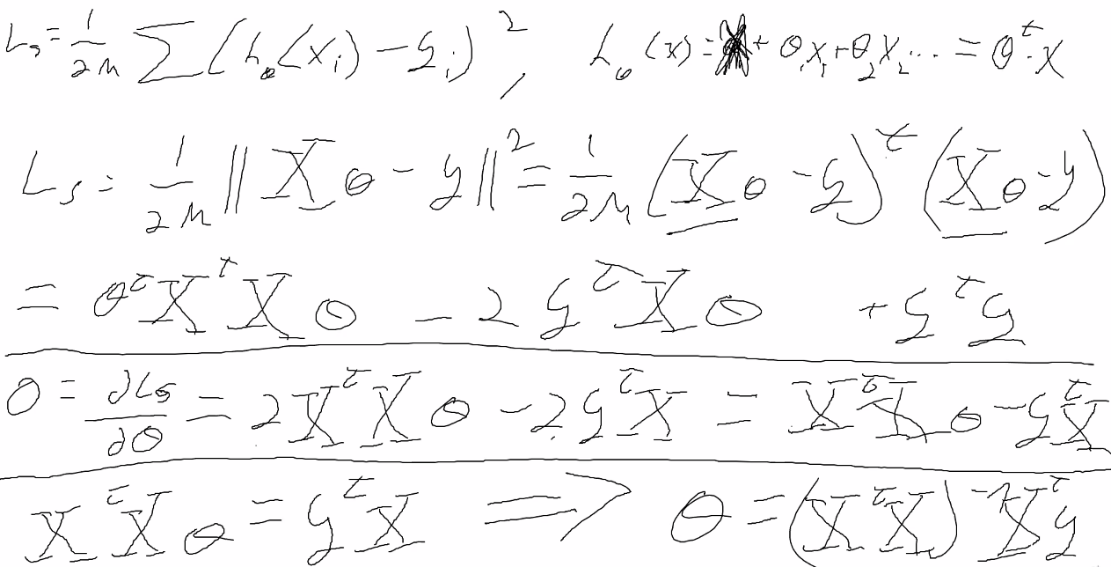 L_s = 1/2m ∑ (h_θ(x_i) - y_i)², h_θ(x) = + θ₁x₁ + θ₂x₂ ... = θᵗ·x
L_s = 1/2m ‖Xθ - y‖² = 1/2m (Xθ - y)ᵗ (Xθ - y)
= θᵗXᵗXθ - 2yᵗXθ + yᵗy
0 = ∂L_s/∂θ = 2XᵗXθ - 2yᵗX = XᵗXθ - yᵗX
XᵗXθ = yᵗX ⟹ θ = (XᵗX)⁻¹Xᵗy